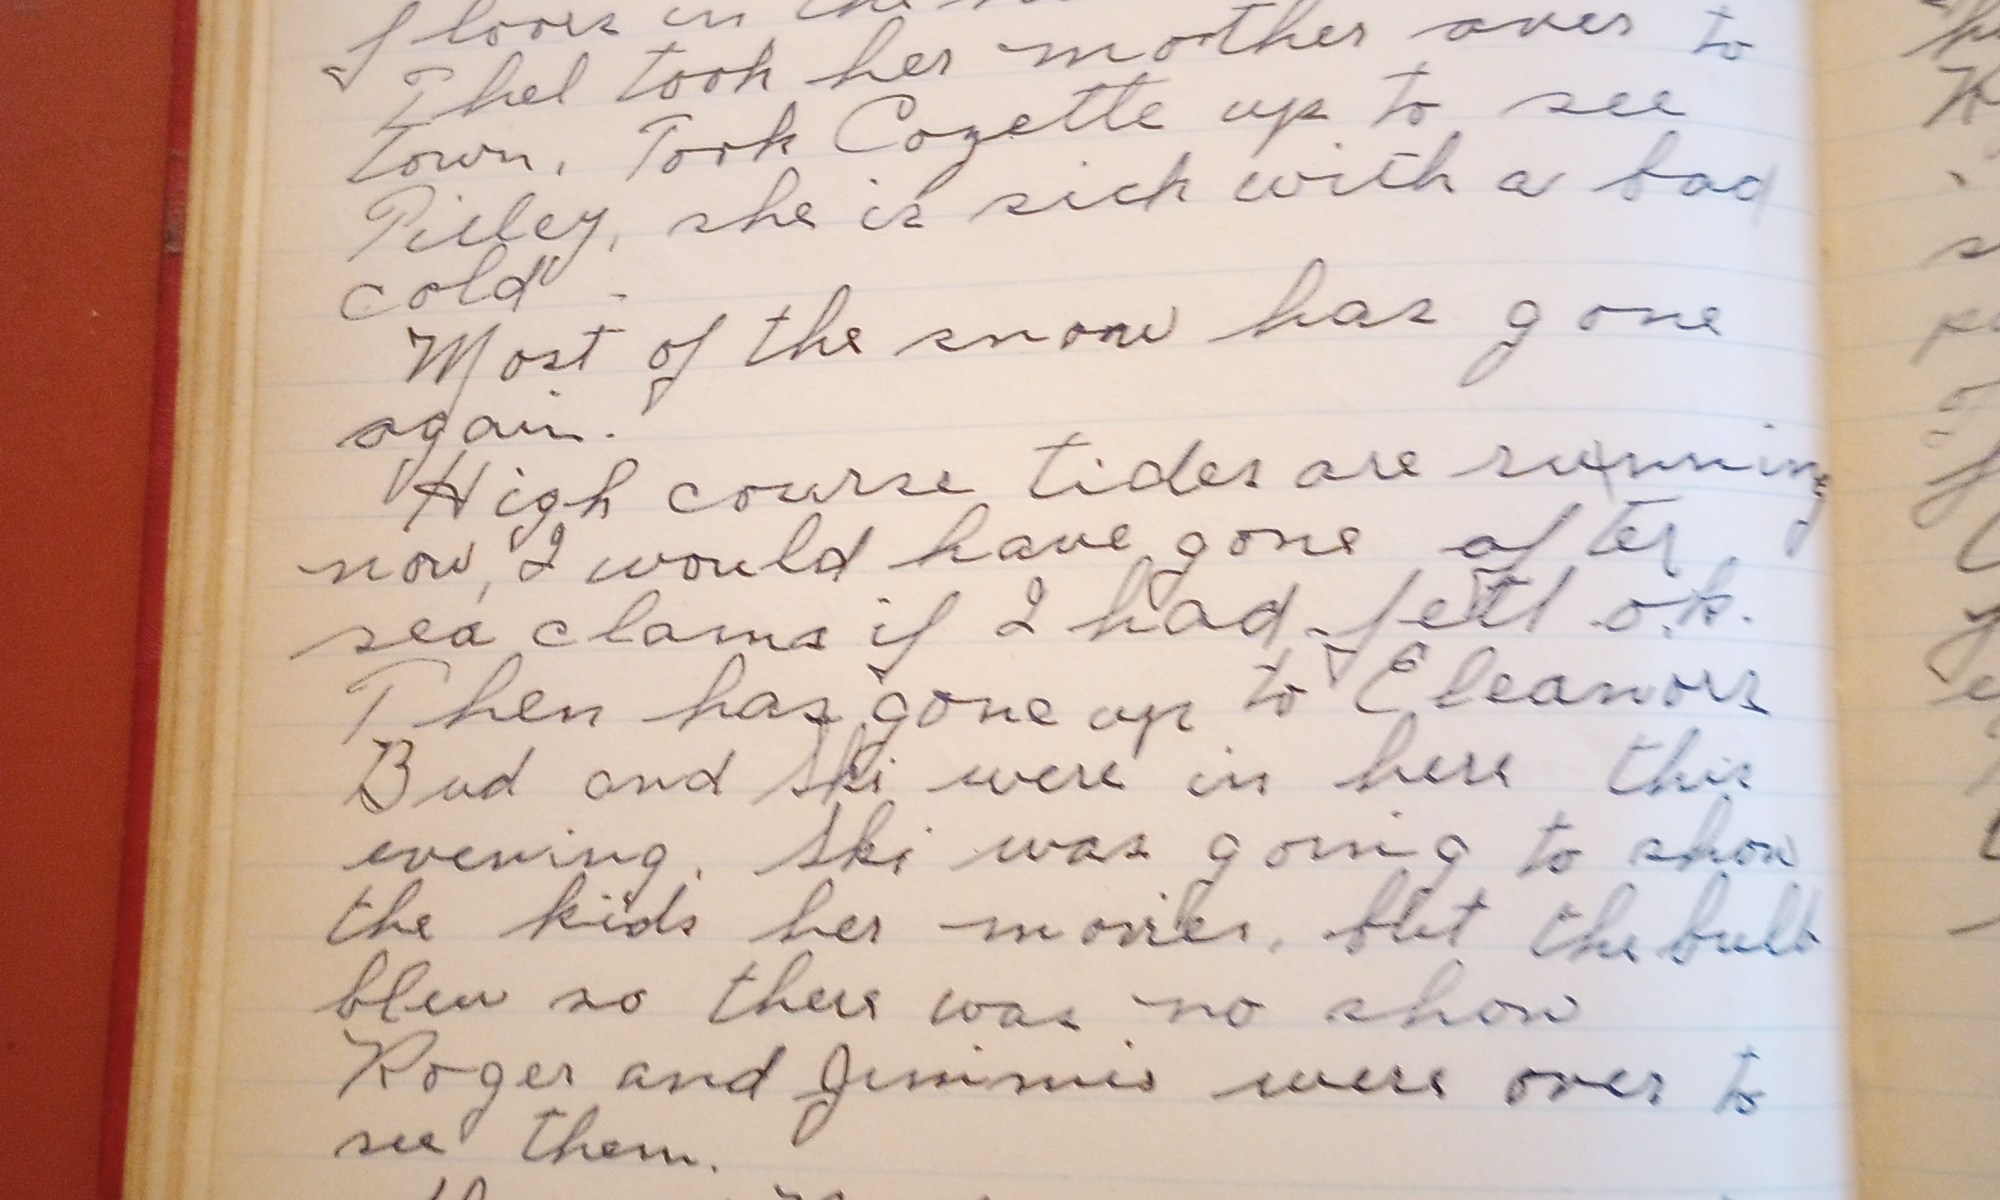 floors in the
Thel took her mother over to
town. Took Cozette up to see
Pilley, she is sick with a bad
cold.
Most of the snow has gone
again.
High course tides are running
now, I would have gone after
sea clams if I had felt o.k.
Then has gone up to Eleanors
Bud and Ski were in here this
evening. Ski was going to show
the kids her movies, but the bulb
blew so there was no show
Roger and Jimmie were over to
see them.